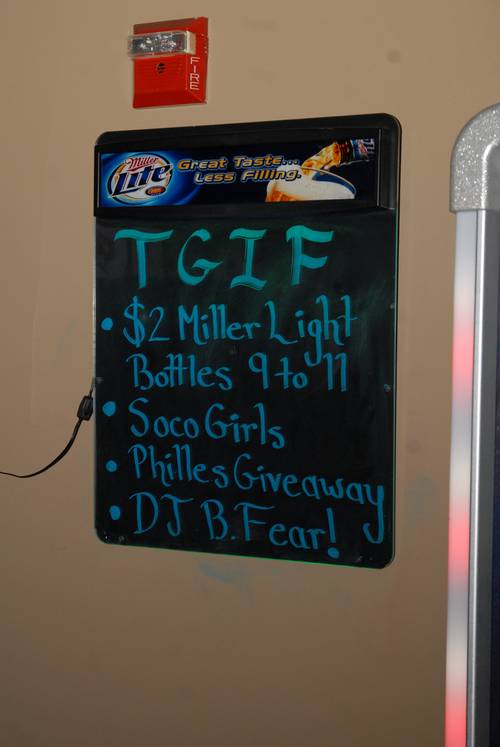 FIRE
Miller
Lite
Great Taste...
Less Filling.
TGIF
• $2 Miller Light
Bottles 9 to 11
• Soco Girls
• Philles Giveaway
• DJ B. Fear!